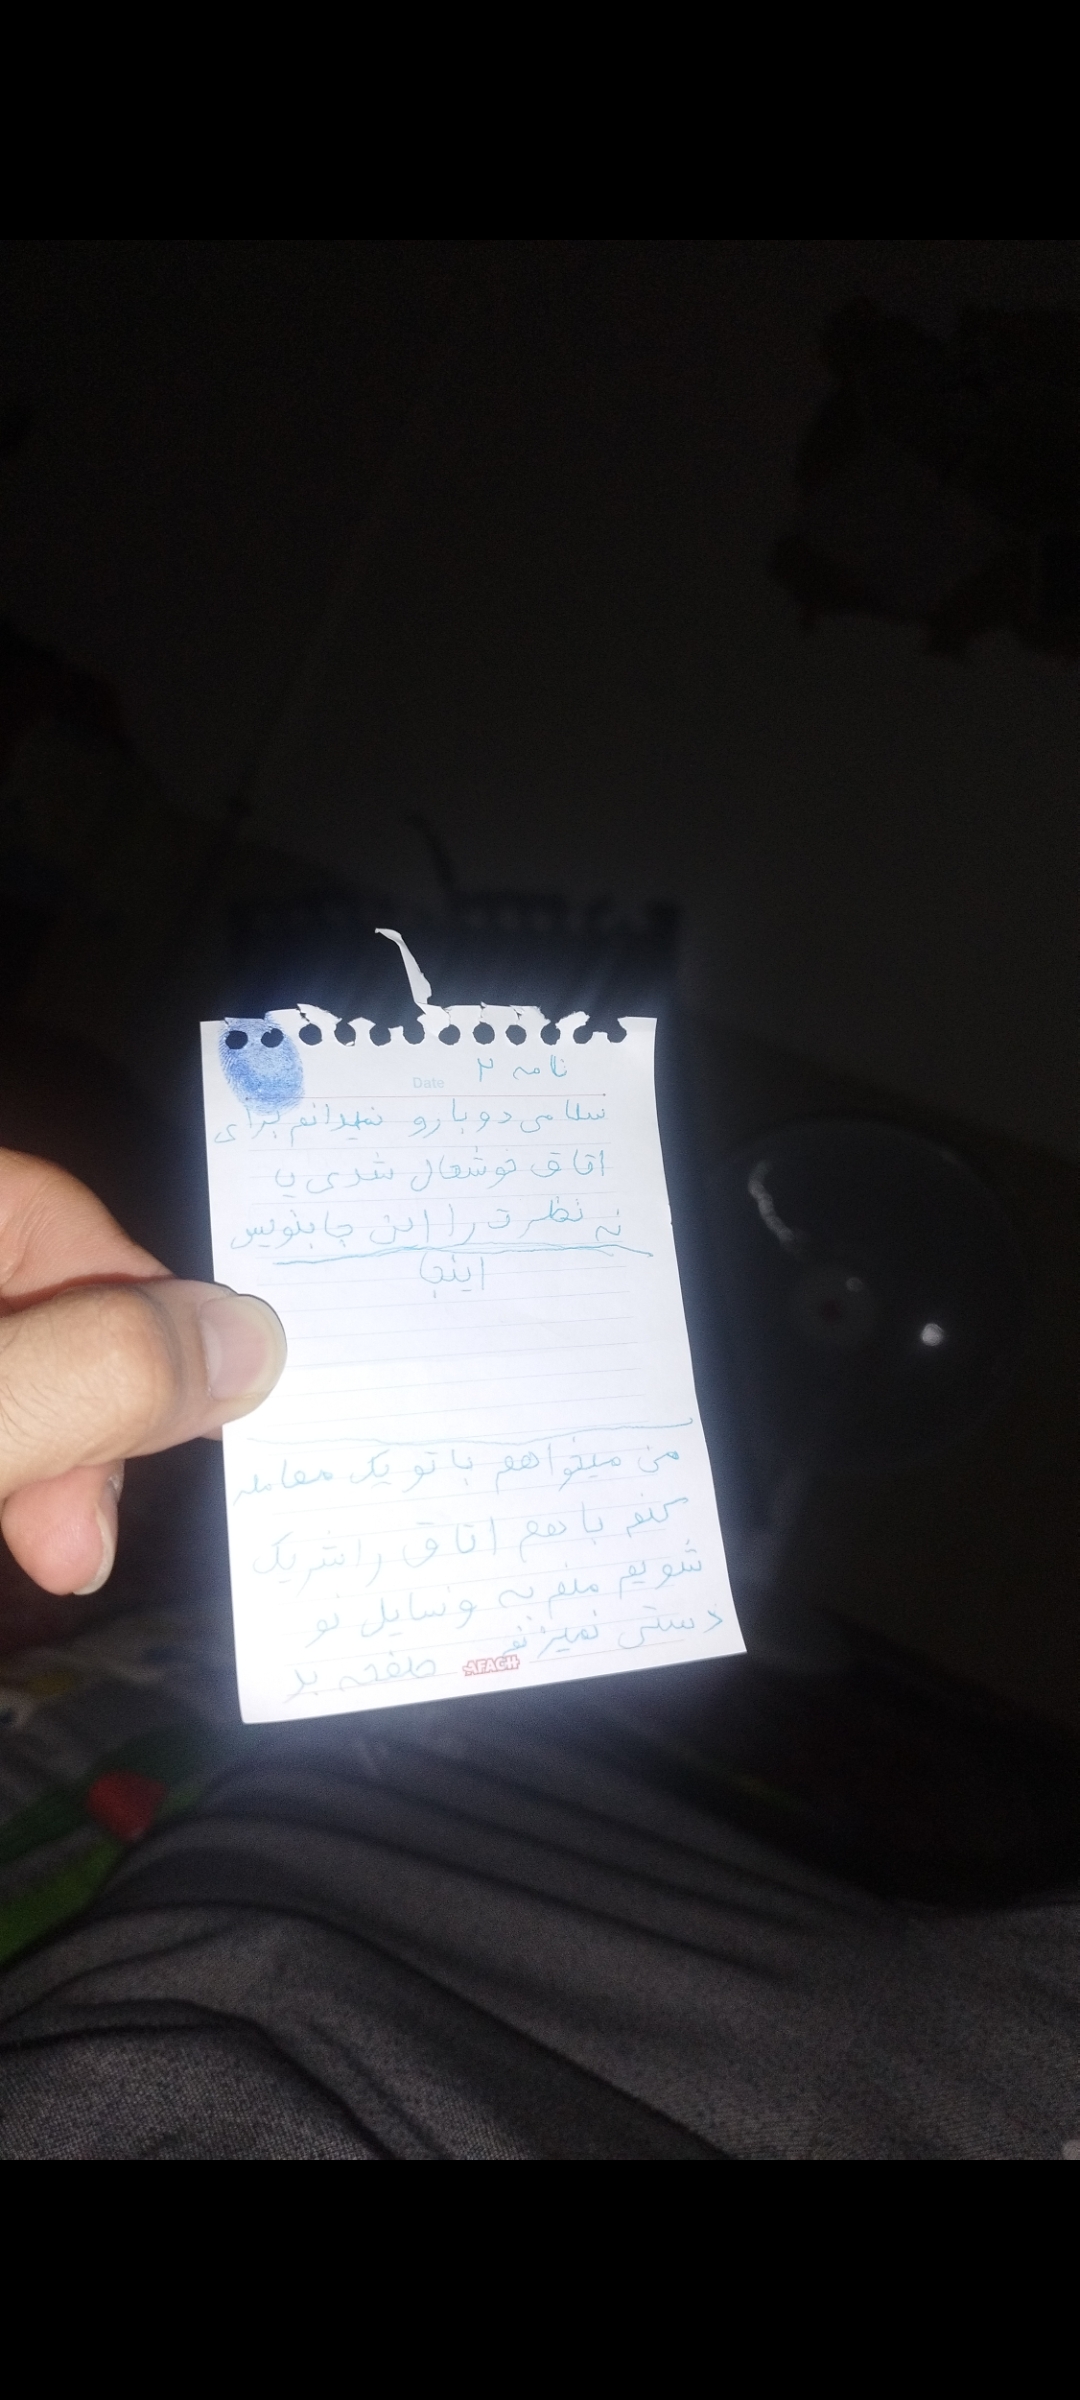 نامه ۲
Date
سلامی دوبارو نمیدانم برای
اتاق خوشحال شدی یا
نه نظرت را این جا بنویس
اینجا
من میخواهم با تو یک معامله
کنم با هم اتاق را شریک
شویم منم به وسایل تو
دستی نمیزنم
صفحه بد
AFAGH